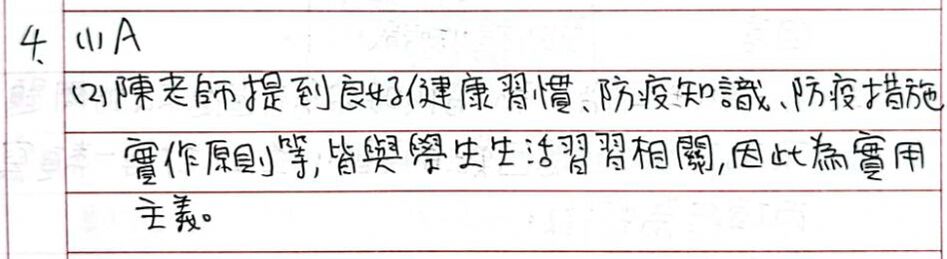 4. (1) A
(2) 陳老師提到良好健康習慣、防疫知識、防疫措施
實作原則等,皆與學生生活習習相關,因此為實用
主義。